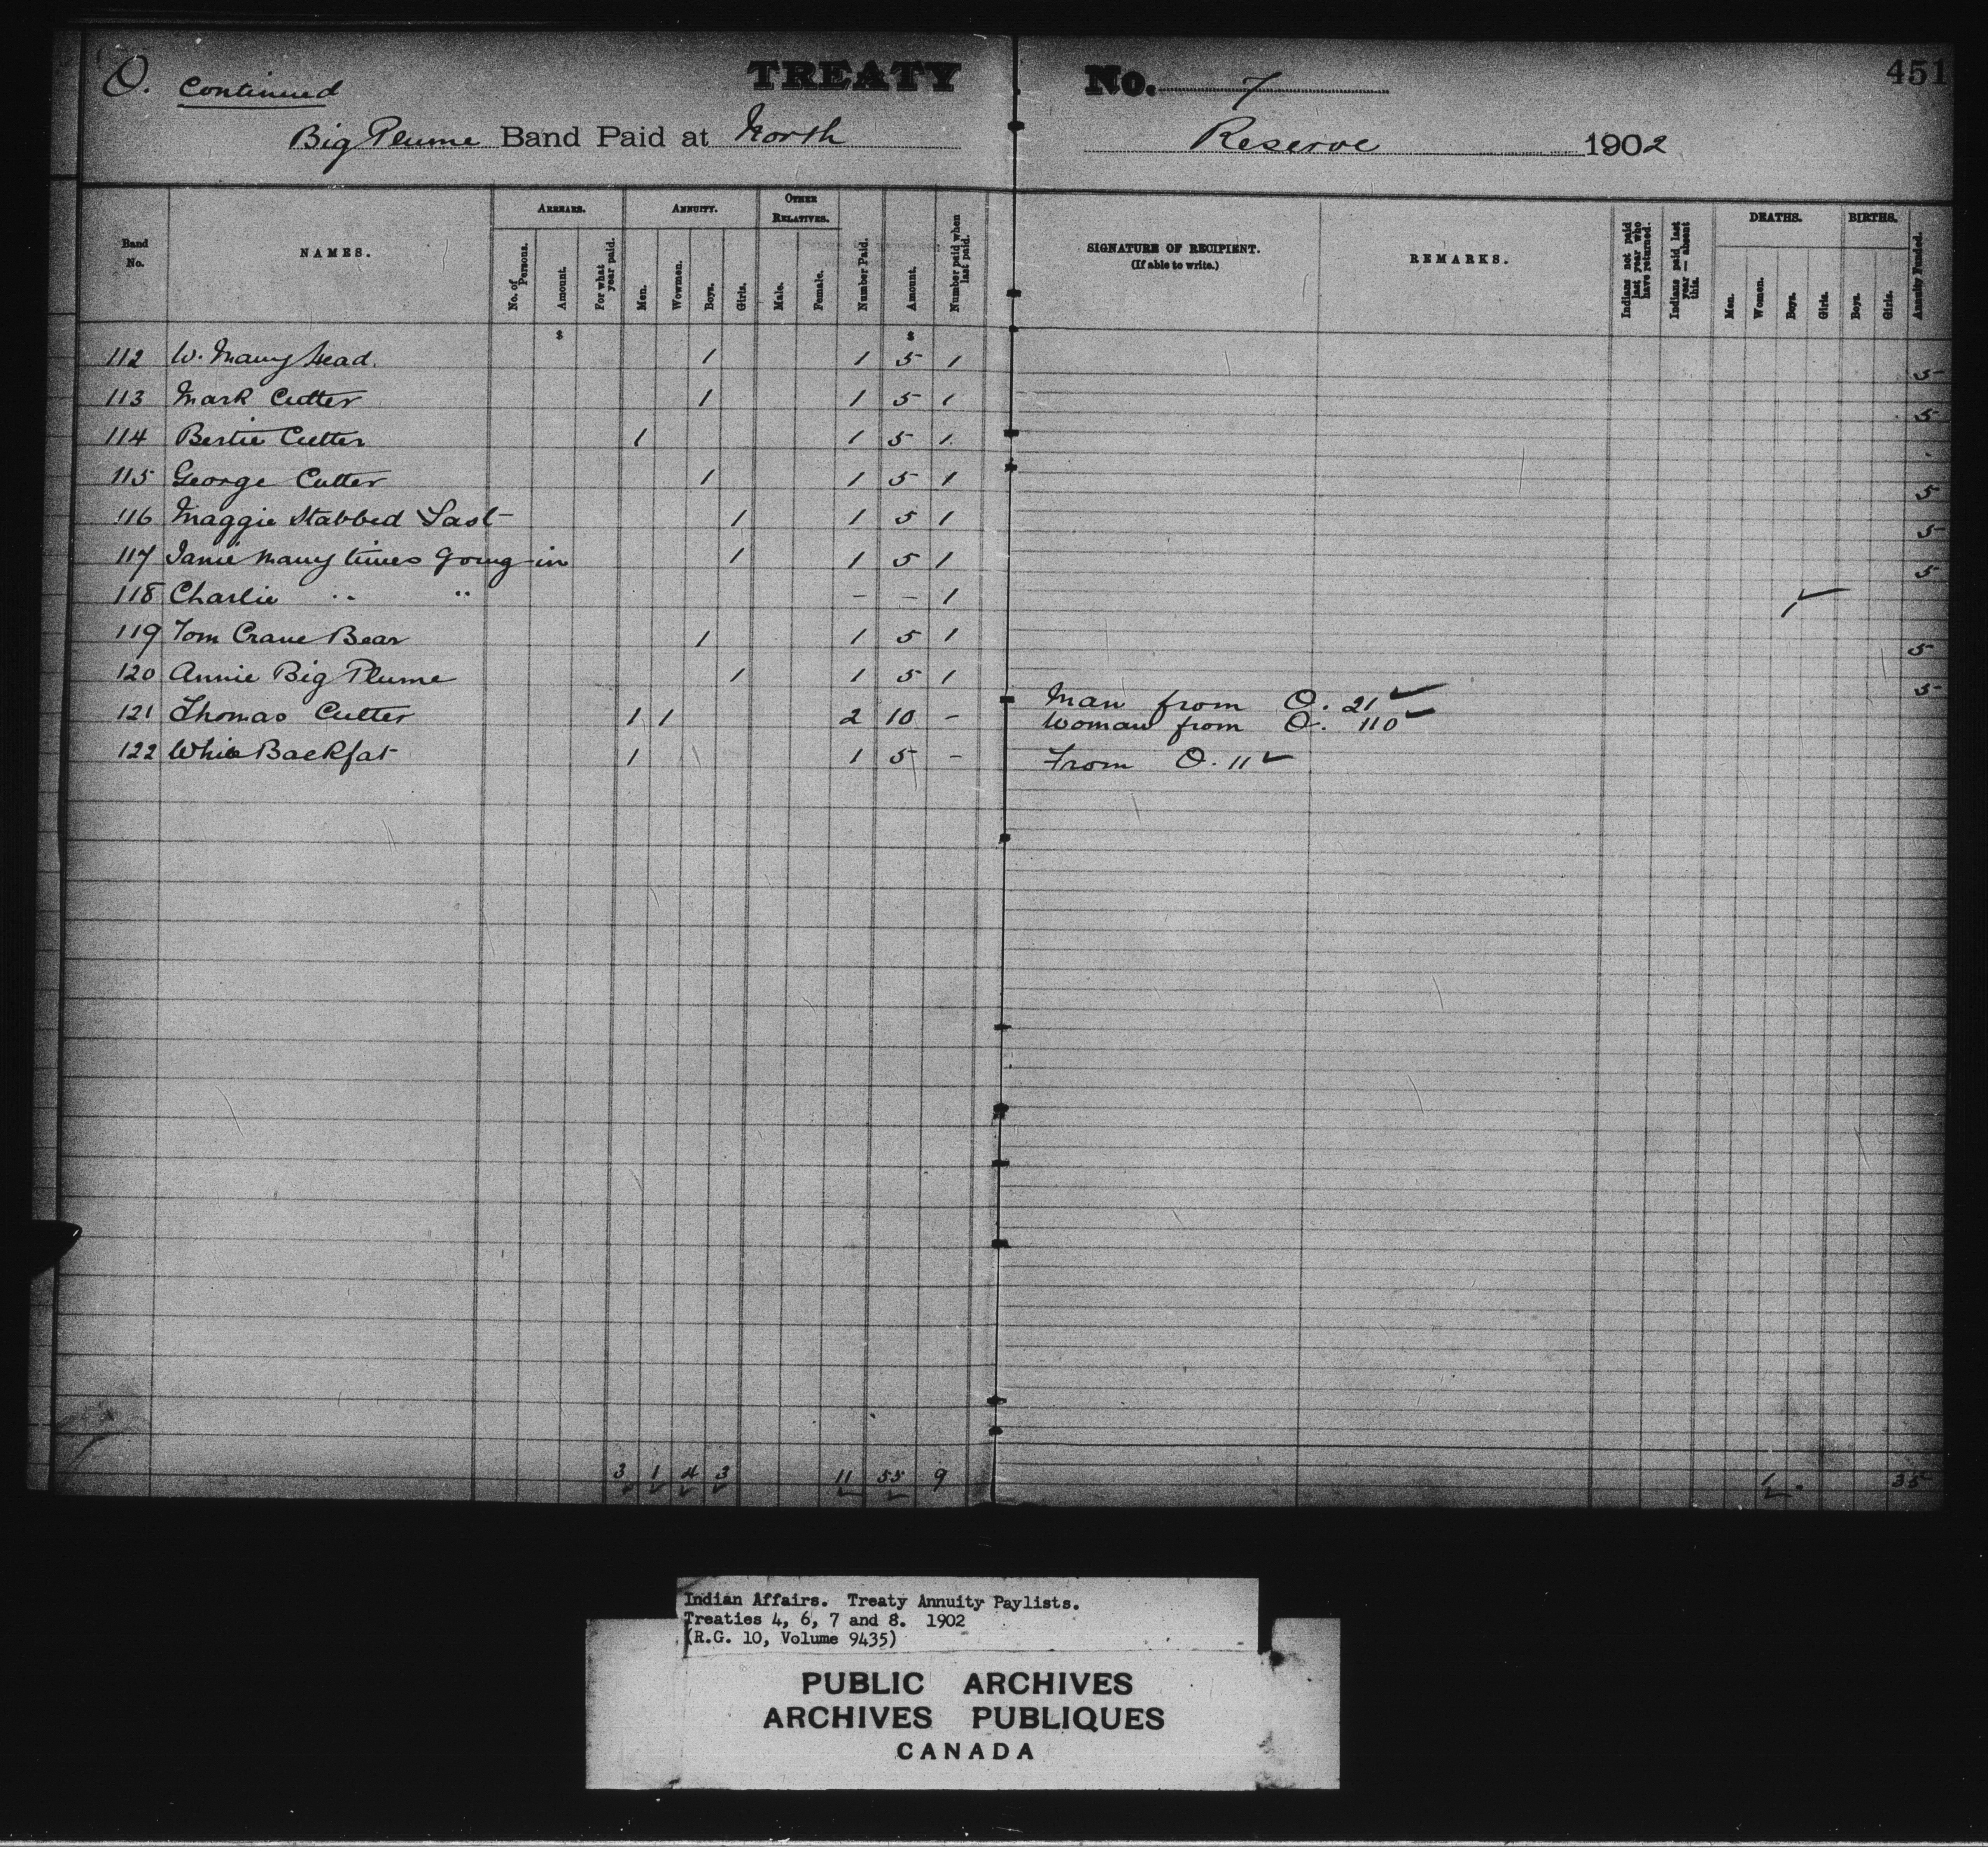 O. Continued TREATY No. 7 451
Big Plume Band Paid at North Reserve 1902
Band No. NAMES. ARREARS. No. of Persons. Amount. For what year paid. ANNUITY. Men. Wowmen. Boys. Girls. OTHER RELATIVES. Male. Female. Number Paid. Amount. Number paid when last paid. SIGNATURE OF RECIPIENT. (If able to write.) REMARKS. Indians not paid last year who have returned. Indians paid last year — absent this. DEATHS. Men. Women. Boys. Girls. BIRTHS. Boys. Girls. Annuity Funded.
$ $
112 W. Many Head. 1 1 5 1 5
113 Mark Cutter 1 1 5 1 5
114 Bertie Cutter 1 1 5 1
115 George Cutter 1 1 5 1 5
116 Maggie Stabbed Last 1 1 5 1 5
117 Janie Many times Going in 1 1 5 1 5
118 Charlie " " – – 1 1 ✓
119 Tom Crane Bear 1 1 5 1 5
120 Annie Big Plume 1 1 5 1 5
121 Thomas Cutter 1 1 2 10 – Man from O. 21 ✓
Woman from O. 110 ✓
122 White Backfat 1 1 5 – From O. 11 ✓
3 1 4 3 11 55 9 1 35
✓ ✓ ✓ ✓ ✓ ✓ ✓
Indian Affairs. Treaty Annuity Paylists.
Treaties 4, 6, 7 and 8. 1902
(R.G. 10, Volume 9435)
PUBLIC ARCHIVES
ARCHIVES PUBLIQUES
CANADA